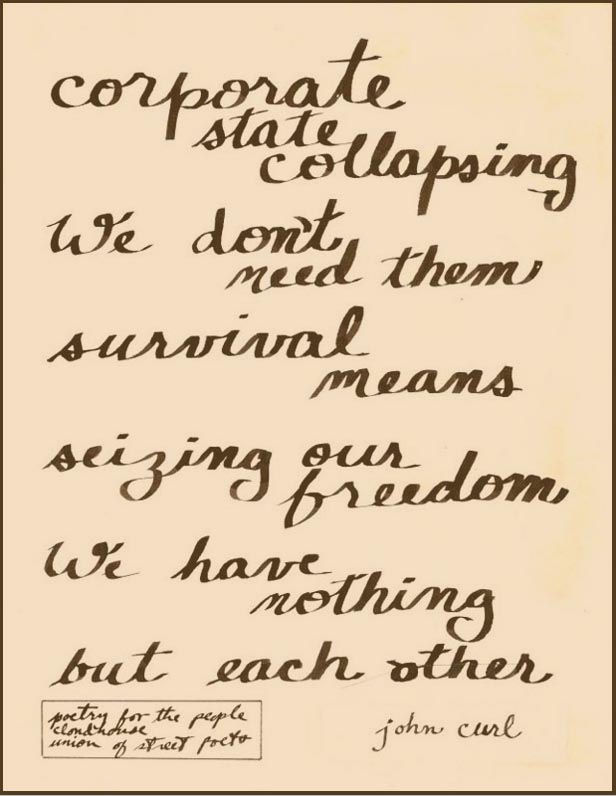 corporate
state
collapsing
We don't
need them
survival
means
seizing our
freedom
We have
nothing
but each other
poetry for the people
cloudhouse
union of street poets
john curl